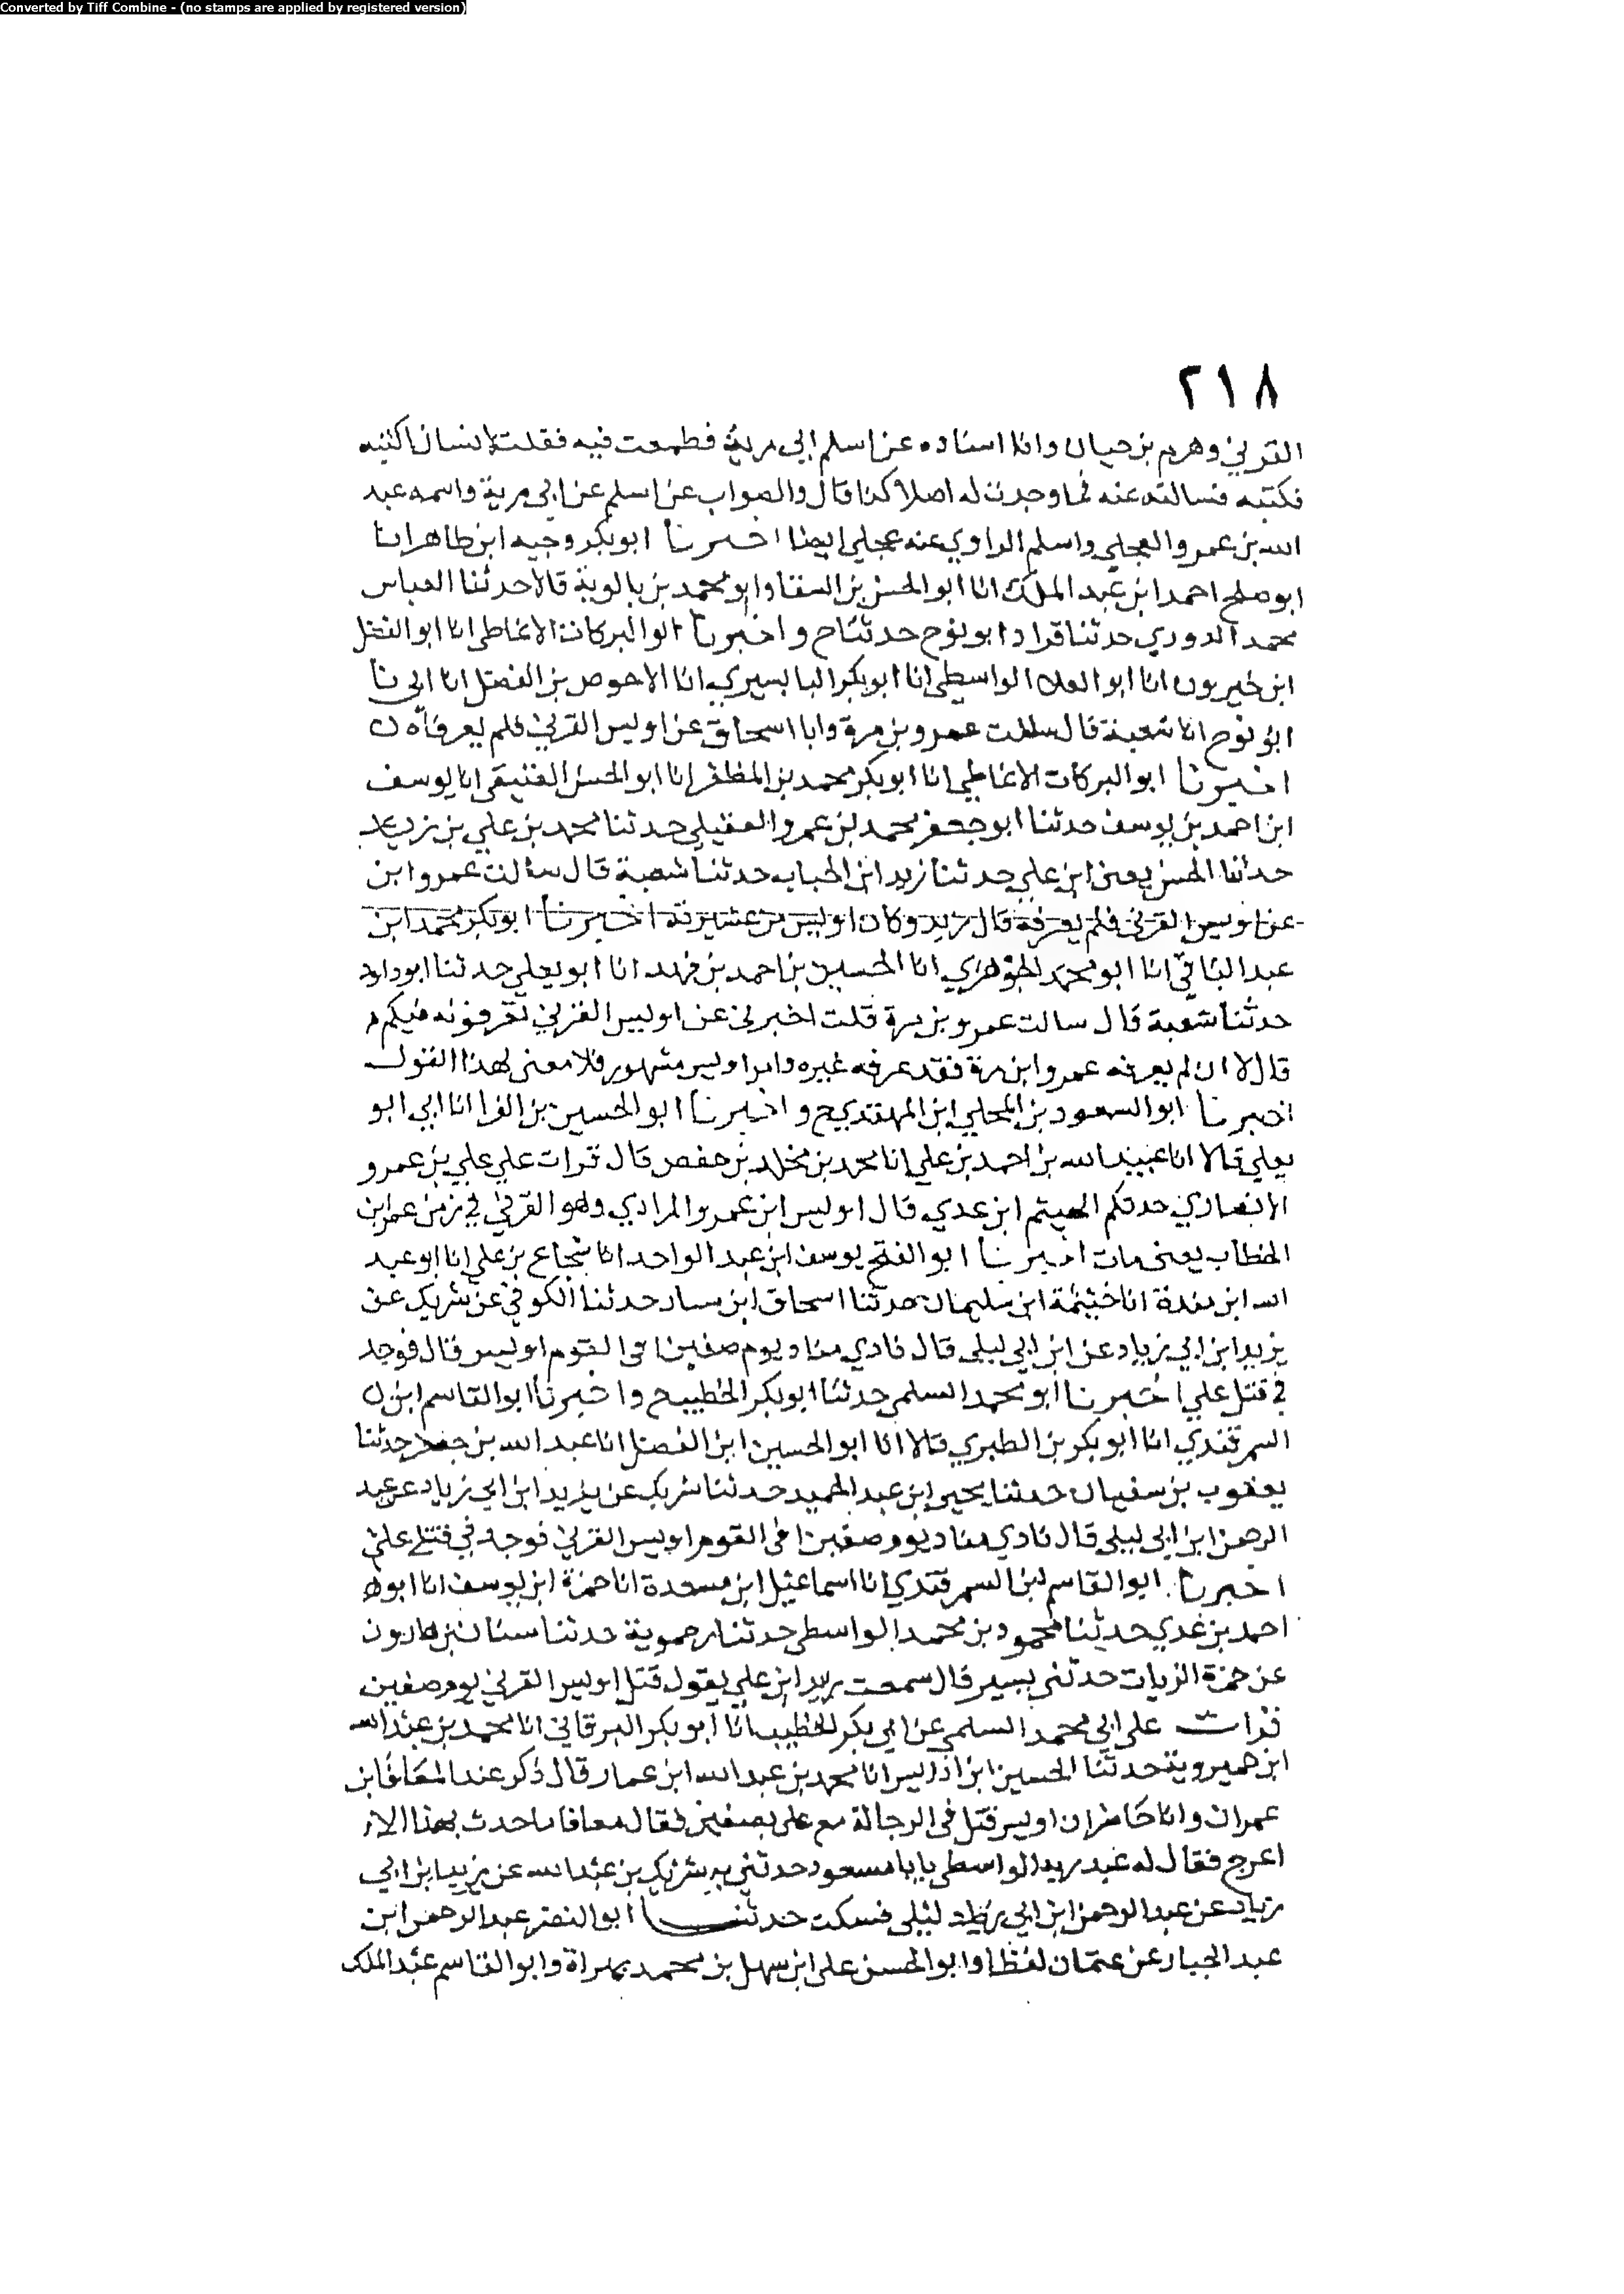 Converted by Tiff Combine - (no stamps are applied by registered version)
٢١٨
القرني وهرم بن حيان وانا اسناده عن اسلم ابي مرية فطمعت فيه فقلت لانسان اكتبه
فكتبه فسالته عنه فما وجدت له اصلا كذا قال والصواب عن اسلم عن ابي مرية واسمه عبد
الله بن عمرو العجلي واسلم الراوي عنه عجلي ايضا اخبرنا ابو بكر وجيه ابن طاهر انا
ابو صلح احمد ابن عبد الملك انا ابو الحسن بن السقا وابو محمد بن بالوية قالا حدثنا العباس
محمد الدوري حدثنا قراد ابو نوح حدثنا ح واخبرنا ابو البركات الانماطي انا ابو الفضل
ابن خيرون انا ابو العلا الواسطي انا ابو بكر البابسيري انا الاحوص بن الفضل انا ابي نا
ابو نوح انا شعبة قال سالت عمرو بن مرة وابا اسحاق عن اويس القرني فلم يعرفاه
اخبرنا ابو البركات الانماطي انا ابو بكر محمد بن المظفر انا ابو الحسن العتيقي انا يوسف
ابن احمد بن يوسف حدثنا ابو جعفر محمد بن عمرو العقيلي حدثنا محمد بن علي بن
حدثنا الحسن يعني ابن علي حدثنا زيد ابن الحباب حدثنا شعبة قال سالت عمرو ابن
عن اويس القرني فلم يعرفه قال زيد وكان اويس من عشيرته اخبرنا ابو بكر محمد ابن
عبد الباقي انا ابو محمد الجوهري انا الحسين بن احمد بن فهد انا ابو يعلي حدثنا ابو داود
حدثنا شعبة قال سالت عمرو بن مرة قلت اخبرني عن اويس القرني تعرفونه فيكم
قال لا ان لم يعرفه عمرو ابن مرة فقد عرفه غيره وامر اويس مشهور فلا معنى لهذا القول
اخبرنا ابو السعود بن المجلي ابن المهتدي ح واخبرنا ابو الحسين بن الفرا انا ابي ابو
يعلي قالا انا عبيد الله بن احمد بن علي انا محمد بن مخلد بن حفص قال قرات علي علي بن عمرو
الانصاري حدثكم الهيثم ابن عدي قال اويس ابن عمرو المرادي وهو القرني في زمن عمر ابن
الخطاب يعني مات اخبرنا ابو الفتح يوسف ابن عبد الواحد انا شجاع بن علي انا ابو عبد
الله ابن مندة انا خيثمة ابن سليمان حدثنا اسحاق ابن سيار حدثنا الكوفي عن شريك عن
يزيد ابن ابي زياد عن ابن ابي ليلى قال نادي مناد يوم صفين افي القوم اويس قال فوجد
في قتلى علي اخبرنا ابو محمد السلمي حدثنا ابو بكر الخطيب ح واخبرنا ابو القاسم ابن
السمرقندي انا ابو بكر بن الطبري قالا انا ابو الحسين ابن الفضل انا عبد الله بن جعفر حدثنا
يعقوب بن سفيان حدثنا يحيى ابن عبد الحميد حدثنا شريك عن يزيد ابن ابي زياد عن عبد
الرحمن ابن ابي ليلى قال نادي مناد يوم صفين افي القوم اويس القرني فوجد في قتلى علي
اخبرنا ابو القاسم ابن السمرقندي انا اسماعيل ابن مسعدة انا حمزة ابن يوسف انا ابو
احمد بن عدي حدثنا محمود بن محمد الواسطي حدثنا رحموية حدثنا سنان بن هارون
عن حمزة الزيات حدثني بسير قال سمعت زيد ابن علي يقول قتل اويس القرني يوم صفين
قرات على ابي محمد السلمي عن ابي بكر الخطيب انا ابو بكر البرقاني انا محمد بن عبد الله
ابن خميرويه حدثنا الحسين ابن ادريس انا محمد بن عبد الله ابن عمار قال ذكر عند المعافا بن
عمران وانا حاضر ان اويس قتل في الرجالة مع علي بصفين فقال معافا ما حدث بهذا الا
اعرج فقال له عبد ربه الواسطي يا با مسعود حدثني به شريك بن عبد الله عن يزيد ابن ابي
زياد عن عبد الرحمن ابن ابي ليلى فسكت حدثنا ابو النضر عبد الرحمن ابن
عبد الجبار عن عثمان لفظا وابو الحسن علي ابن سهل بن محمد بهراة وابو القاسم عبد الملك